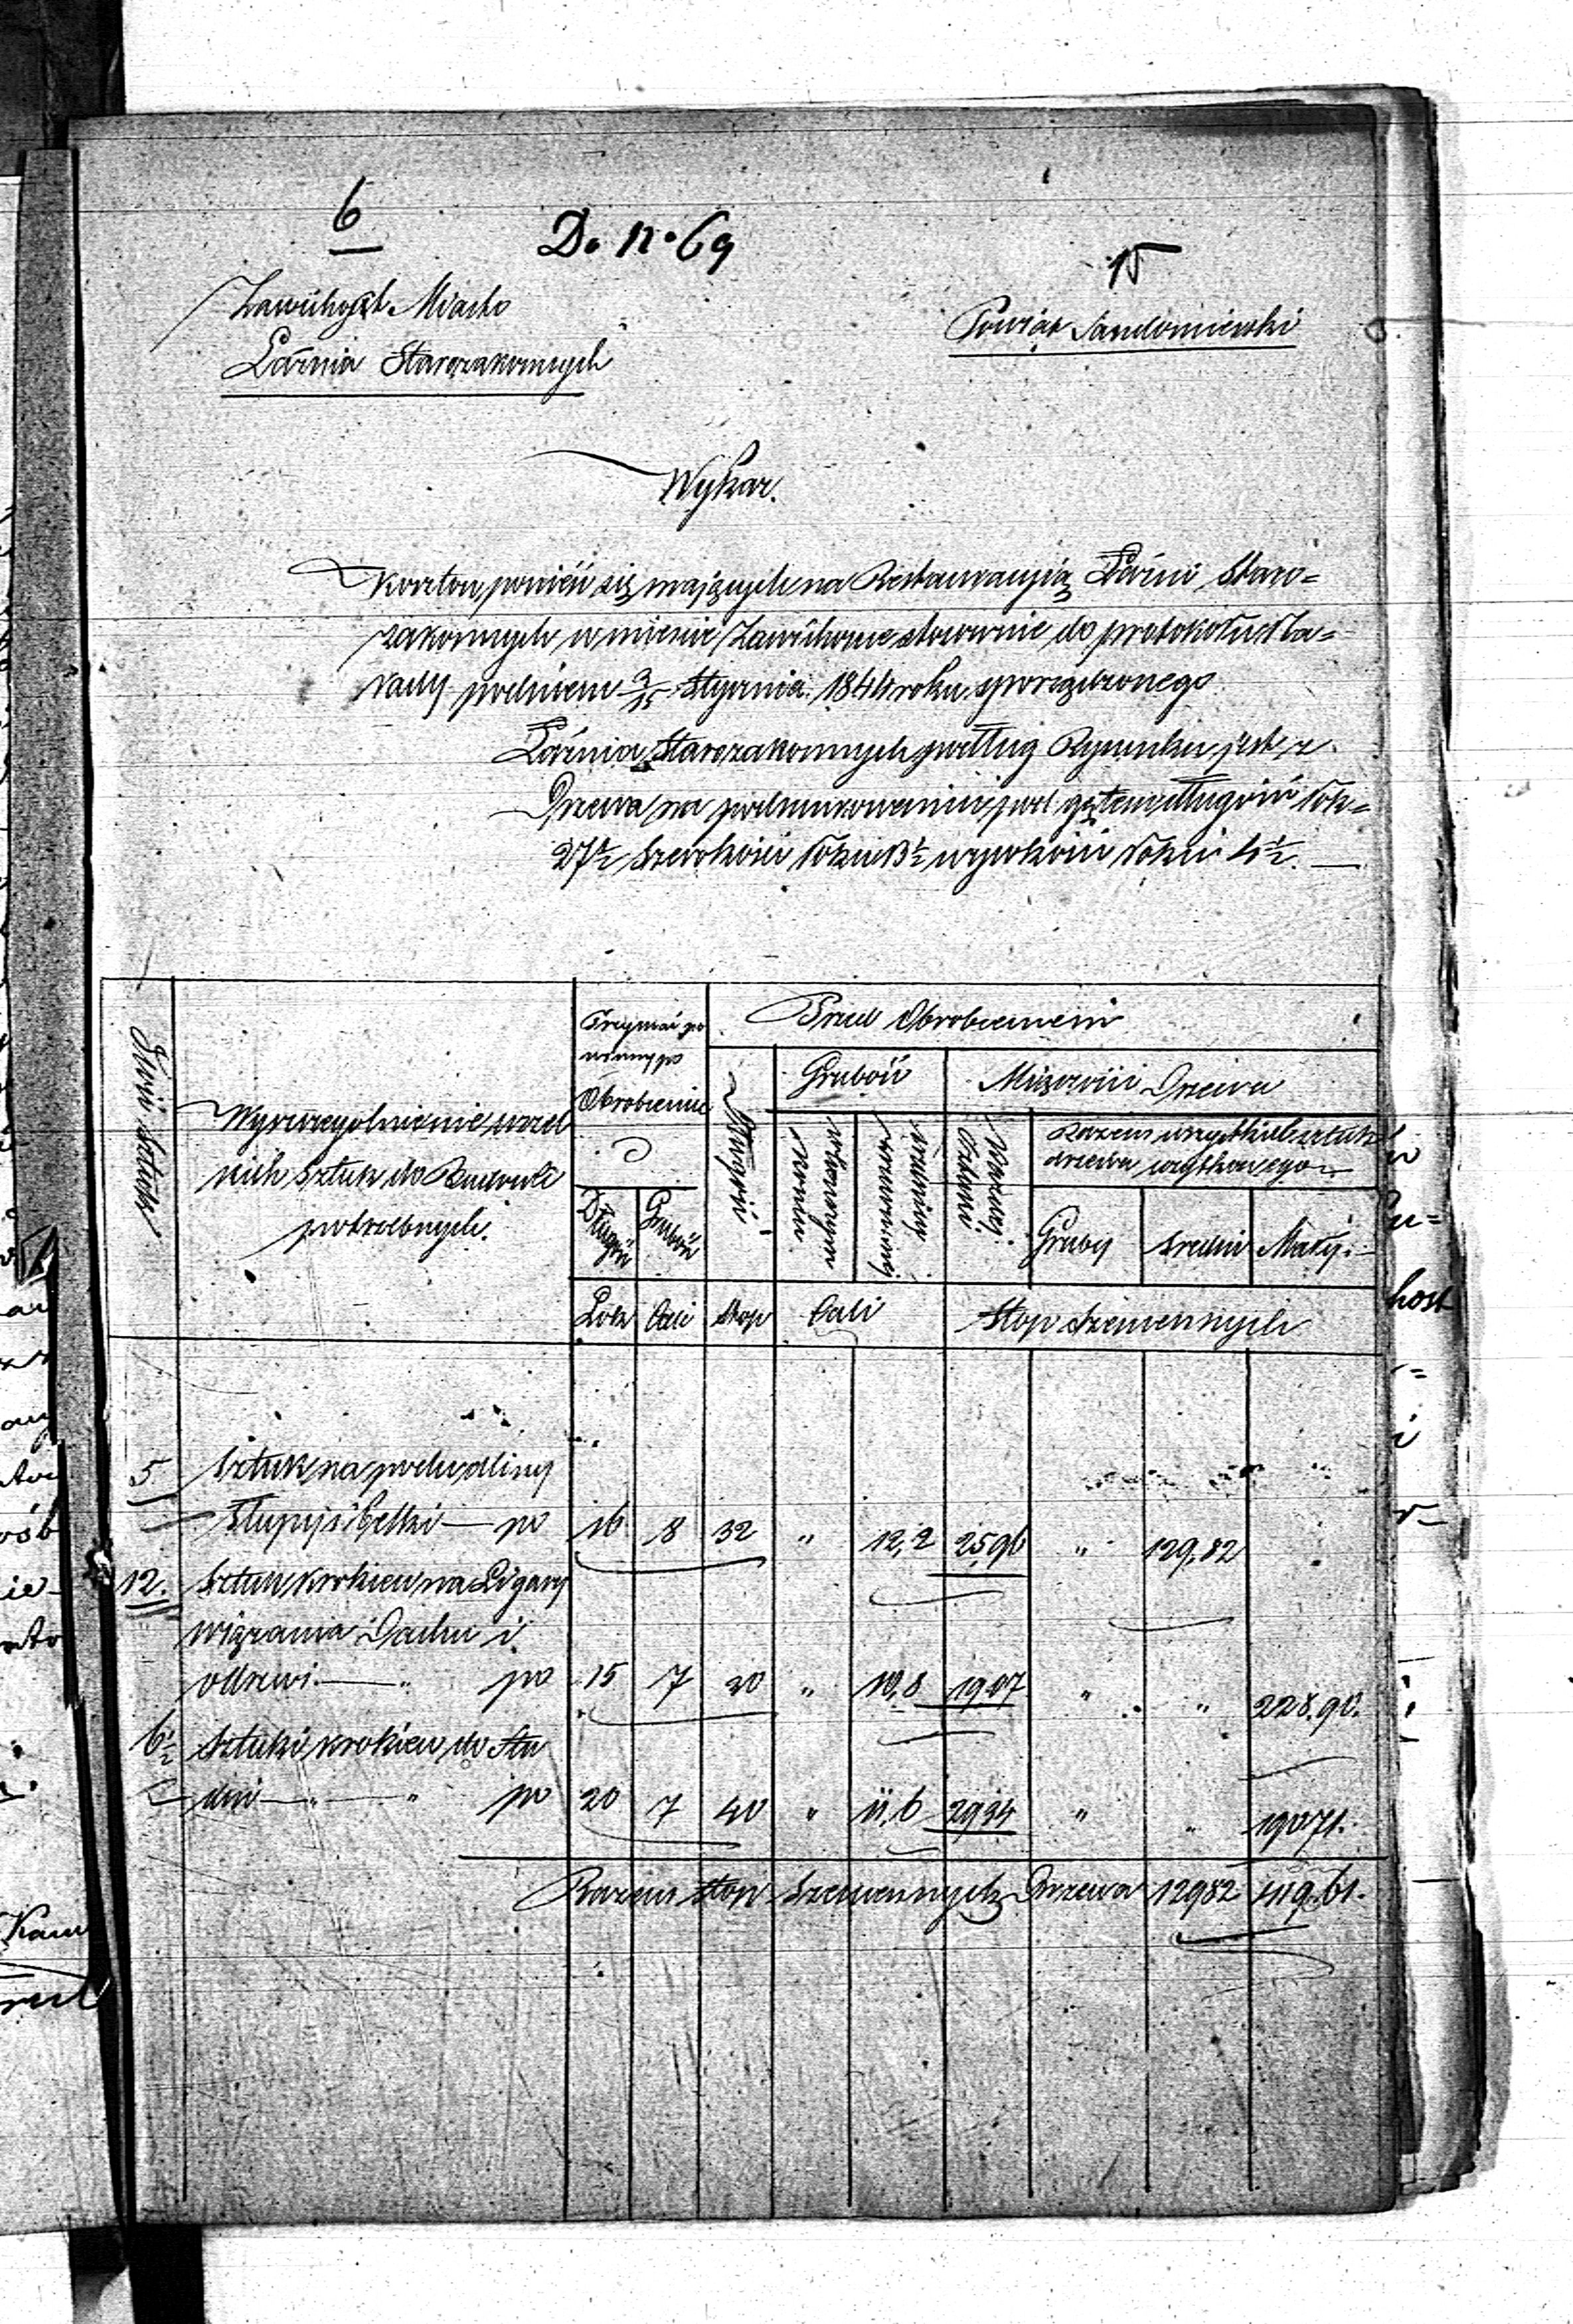 6
Do N. 69
15
Zawichost Miasto
Powiat Sandomierski
Łaźnia Starozakonnych
Wykaz.
kosztow, ponieść się mających na Restauracyią Łaźni Staro=
zakonnych w mieście Zawichoscie stosownie do protokołu
pod dniem 3/15 Stycznia 1844 roku sporządzonego
Łaźnia Starozakonnych podług Rysunku jest z
Drzewa na podmurowaniu pod gątem długości łok=
27½ Szerokości łokci 13½ wysokości łokci 4½. —
Ilość Sztuk
Wyszczególnienie
nich Sztuk do Budowli
potrzebnych.
Trzymać po
winny po
Obrobieniu
Długość
Grubość
Przed Obrobieniem
Długość
Grubość
Miąższości Drzewa
Każdej
Razem wszystkich sztuk
drzewa
Gruby
Średni
Mały
Łok
Cali
Stop
Cali
Stop Sześciennych
5 Sztuk na podwaliny
Słupy i Belki — po 16 8 32 " 12,2 25,96 " 129,82
12. Sztuk krokiew na Ligary
wiązania Dachu i
odrzwi — " po 15 7 30 " 10,8 19,07 " " 228.90.
6½ Sztuki krokiew do Stu
dni — " — " po 20 7 40 " 11,6 29,34 " " 190.71.
Razem stop Sześciennych Drzewa 129.82 419.61.